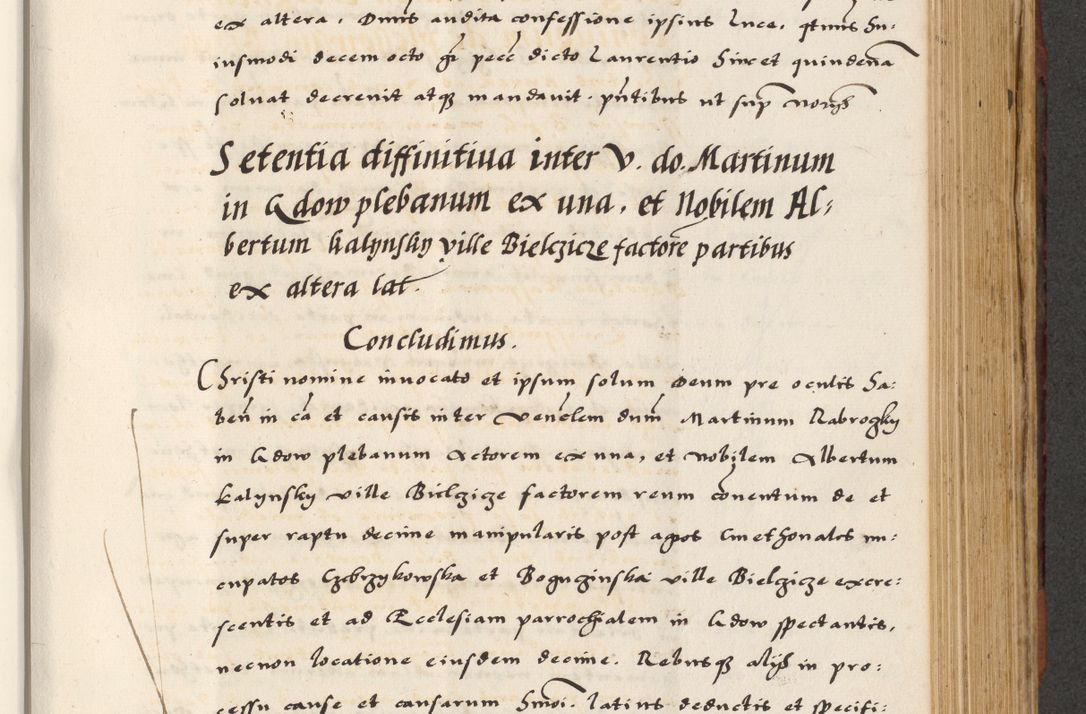 ex altera. Omnis audita confessione ipsius Luce, hu-
iusmodi decem octo gr pecc dicto Laurentio hinc et quindena
soluat decrenit atque mandauit. pntibus ut sup
Setentia diffinitiua inter V. do. Martinum
in Gdow plebanum ex una, et Nobilem Al-
bertum Kalynsky ville Bielczicze factore partibus
ex altera lat.
Concludimus.
Christi nomine inuocato et ipsum solum Deum pre oculis ha-
ben in ca et causis inter Venelem dum Martinum Rabrogky
in Gdow plebanum Actorem ex una, et Nobilem Albertum
Kalynsky ville Bielczicze factorem reum conentum de et
super raptu decime manipularis post agros Cmethonales nu-
cupatos Czebrzykowska et Boguczinska ville Bielczicze excre-
scentis et ad Ecclesiam parrochialem in Gdow spectantis,
necnon locatione eiusdem decime. Rebusque alys in pro-
cessu cause et causarum hmoi. latius deductis et specifi-